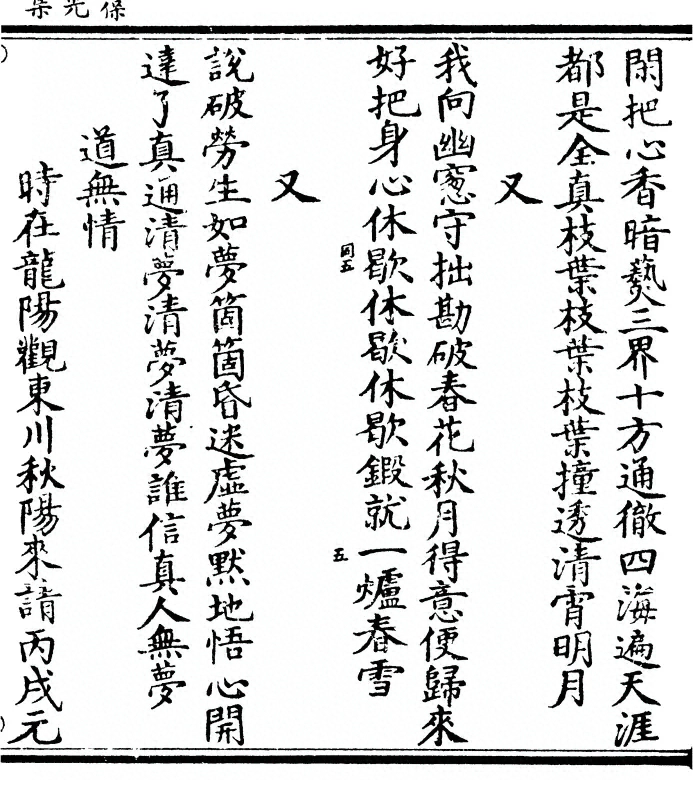 葆光集
閑把心香暗爇三界十方通徹四海遍天涯
都是全真枝葉枝葉枝葉撞透清霄明月
又
我向幽窓守拙勘破春花秋月得意便歸來
好把身心休歇休歇休歇鍛就一爐春雪
同五
五
又
說破勞生如夢箇箇昏迷虛夢默地悟心開
達了真通清夢清夢清夢誰信真人無夢
道無情
時在龍陽觀東川秋陽來請丙戌元